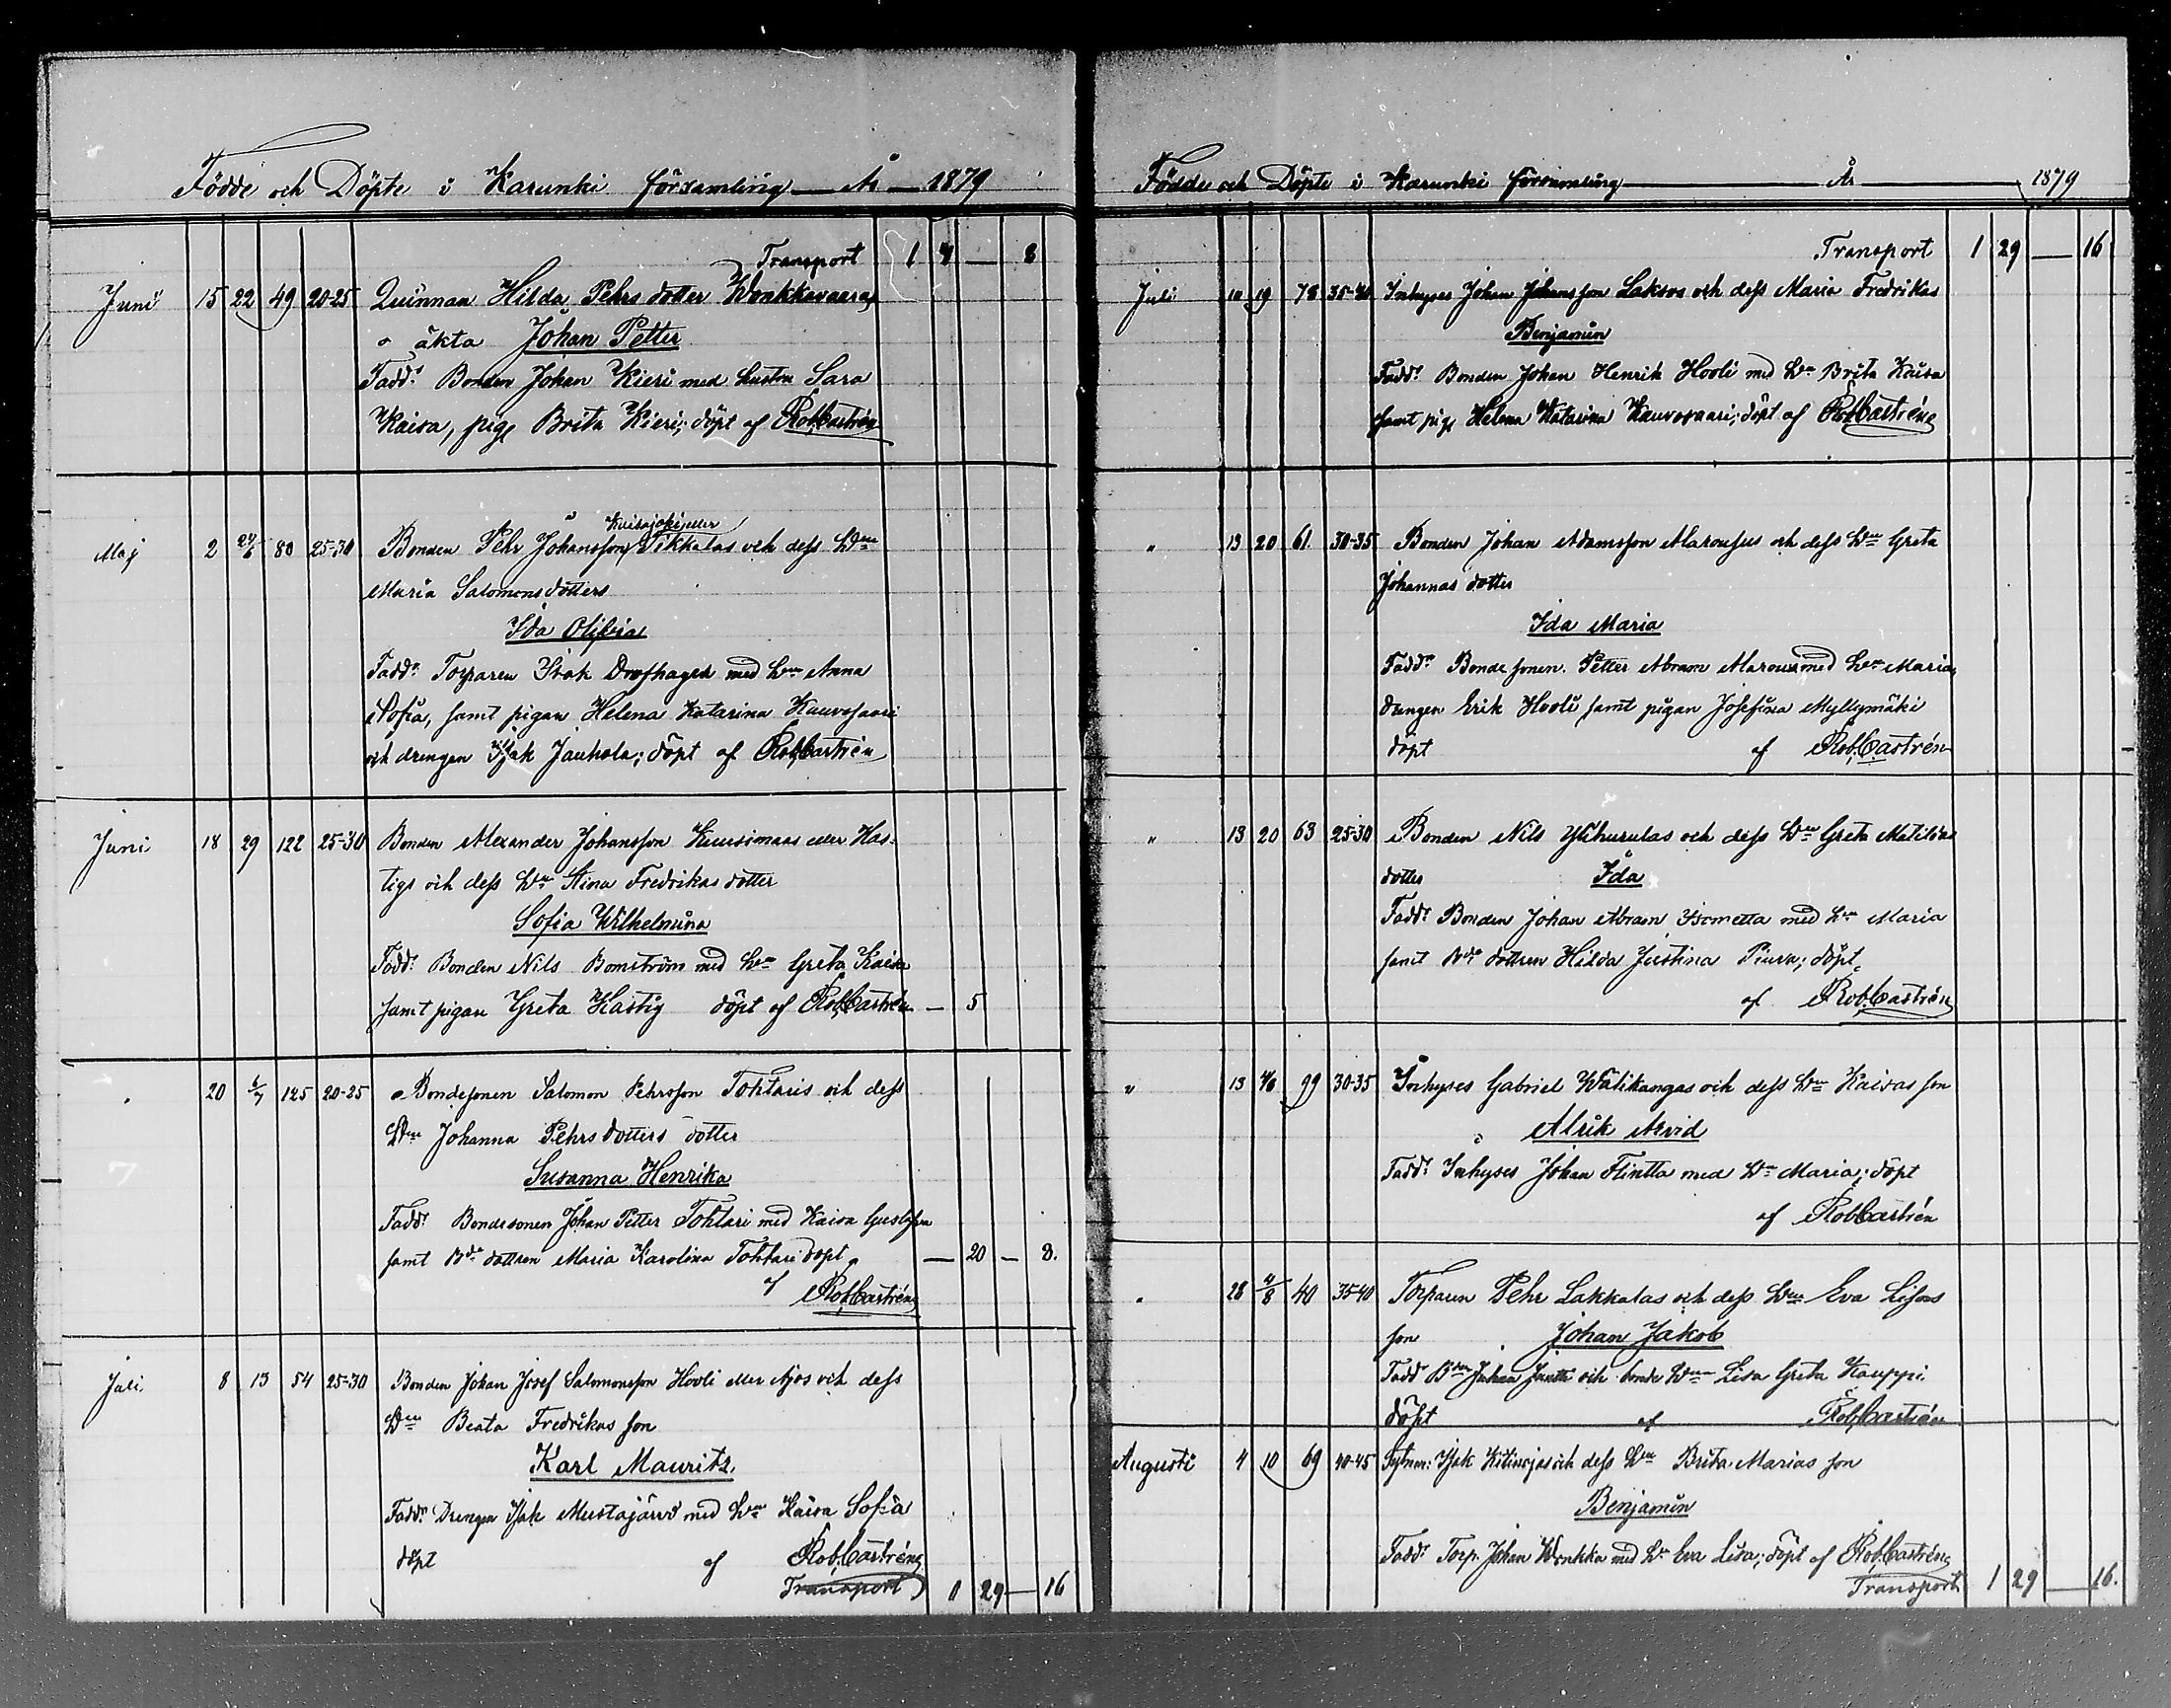 Födde och Döpte i Karunki församling År 1879
Transport 1 4 — 8
Juni 15 22 49 20-25 Quinnan Hilda Pehrs dotter Wonkkavaaras
o äkta Johan Petter
Fadd: Bonden Johan Kieri med hustru Sara
Kaisa, pig. Brita Kieri; döpt af Rob. Castrén
Maj 2 24/6 80 25-30 Bonden Pehr Johansson Pikkalas och dess Hu
Maria Salomonsdotters
Ida Olivia
Fadd: Torparen Isak med Hu Anna
Sofia, samt pigan Helena Katarina Kauvosaari
och drengen Isak Jauhola; döpt af Rob. Castrén
Juni 18 29 122 25-30 Bonden Alexander Johansson Kuusimaas eller Has-
tigs och dess Hu Stina Fredrikas dotter
Sofia Wilhelmina
Fadd: Bonden Nils Bomström med Hu Greta Kaisa
samt pigan Greta Hastig döpt af Rob. Castrén — 5
" 20 6/7 125 20-25 Bondesonen Salomon Pehrsson Tohtaris och dess
Hu Johanna Pehrsdotters dotter
Susanna Henrika
Fadd: Bondesonen Johan Petter Tohtari med Kaisa Gustafva
samt Bde dottren Maria Karolina Tohtari döpt — 20 — 8.
af Rob. Castrén
Juli 8 13 54 25-30 Bonden Johan Josef Salomonsson Hooli eller Ajos och dess
Hu Beata Fredrikas son
Karl Mauritz
Fadd: Drengen Isak Mustajärvi med Hu Kaisa Sofia
döpt af Rob. Castrén
Transport 1 29 — 16
Födde och Döpte i Karunki församling År 1879
Transport 1 29 — 16
Juli 10 19 78 35-40 Inhyses Johan Johansson Laksos och dess Maria Fredrikas
Benjamin
Fadd: Bonden Johan Henrik Hooli med Hu Brita Kaisa
samt pig. Helena Katarina Kauvosaari; döpt af Rob Castrén
" 13 20 61 30-35 Bonden Johan Adamsson Alarousus och dess Hu Greta
Johannas dotter
Ida Maria
Fadd: Bondesonen Petter Abram Alarousu med Hu Maria,
drengen Erik Hooli samt pigan Josefina Myllymäki
döpt af Rob. Castrén
" 13 20 63 25-30 Bonden Nils Ylihurulas och dess Hu Greta Matildas
dotter Ida
Fadd: Bonden Johan Abram Isometta med Hu Maria
samt Bde dottren Hilda Justina Piura; döpt
af Rob. Castrén
" 13 99 30-35 Inhyses Gabriel Wälikangas och dess Hu Kaisas son
Alrik Arvid
Fadd: Inhyses Johan Flintta med Hu Maria; döpt
af Rob Castrén
" 28 4/8 40 35-40 Torparen Pehr Lakkalas och dess Hu Eva Lisas
son Johan Jakob
Fadd Bden Johan och bonde Hu Lisa Greta Kauppi
döpt af Rob. Castrén
Augusti 4 10 69 40-45 Isak och dess Hu Brita Marias son
Benjamin
Fadd: Torp. Johan Wonkka med Hu Eva Lisa; döpt af Rob. Castrén
Transport 1 29 — 16.